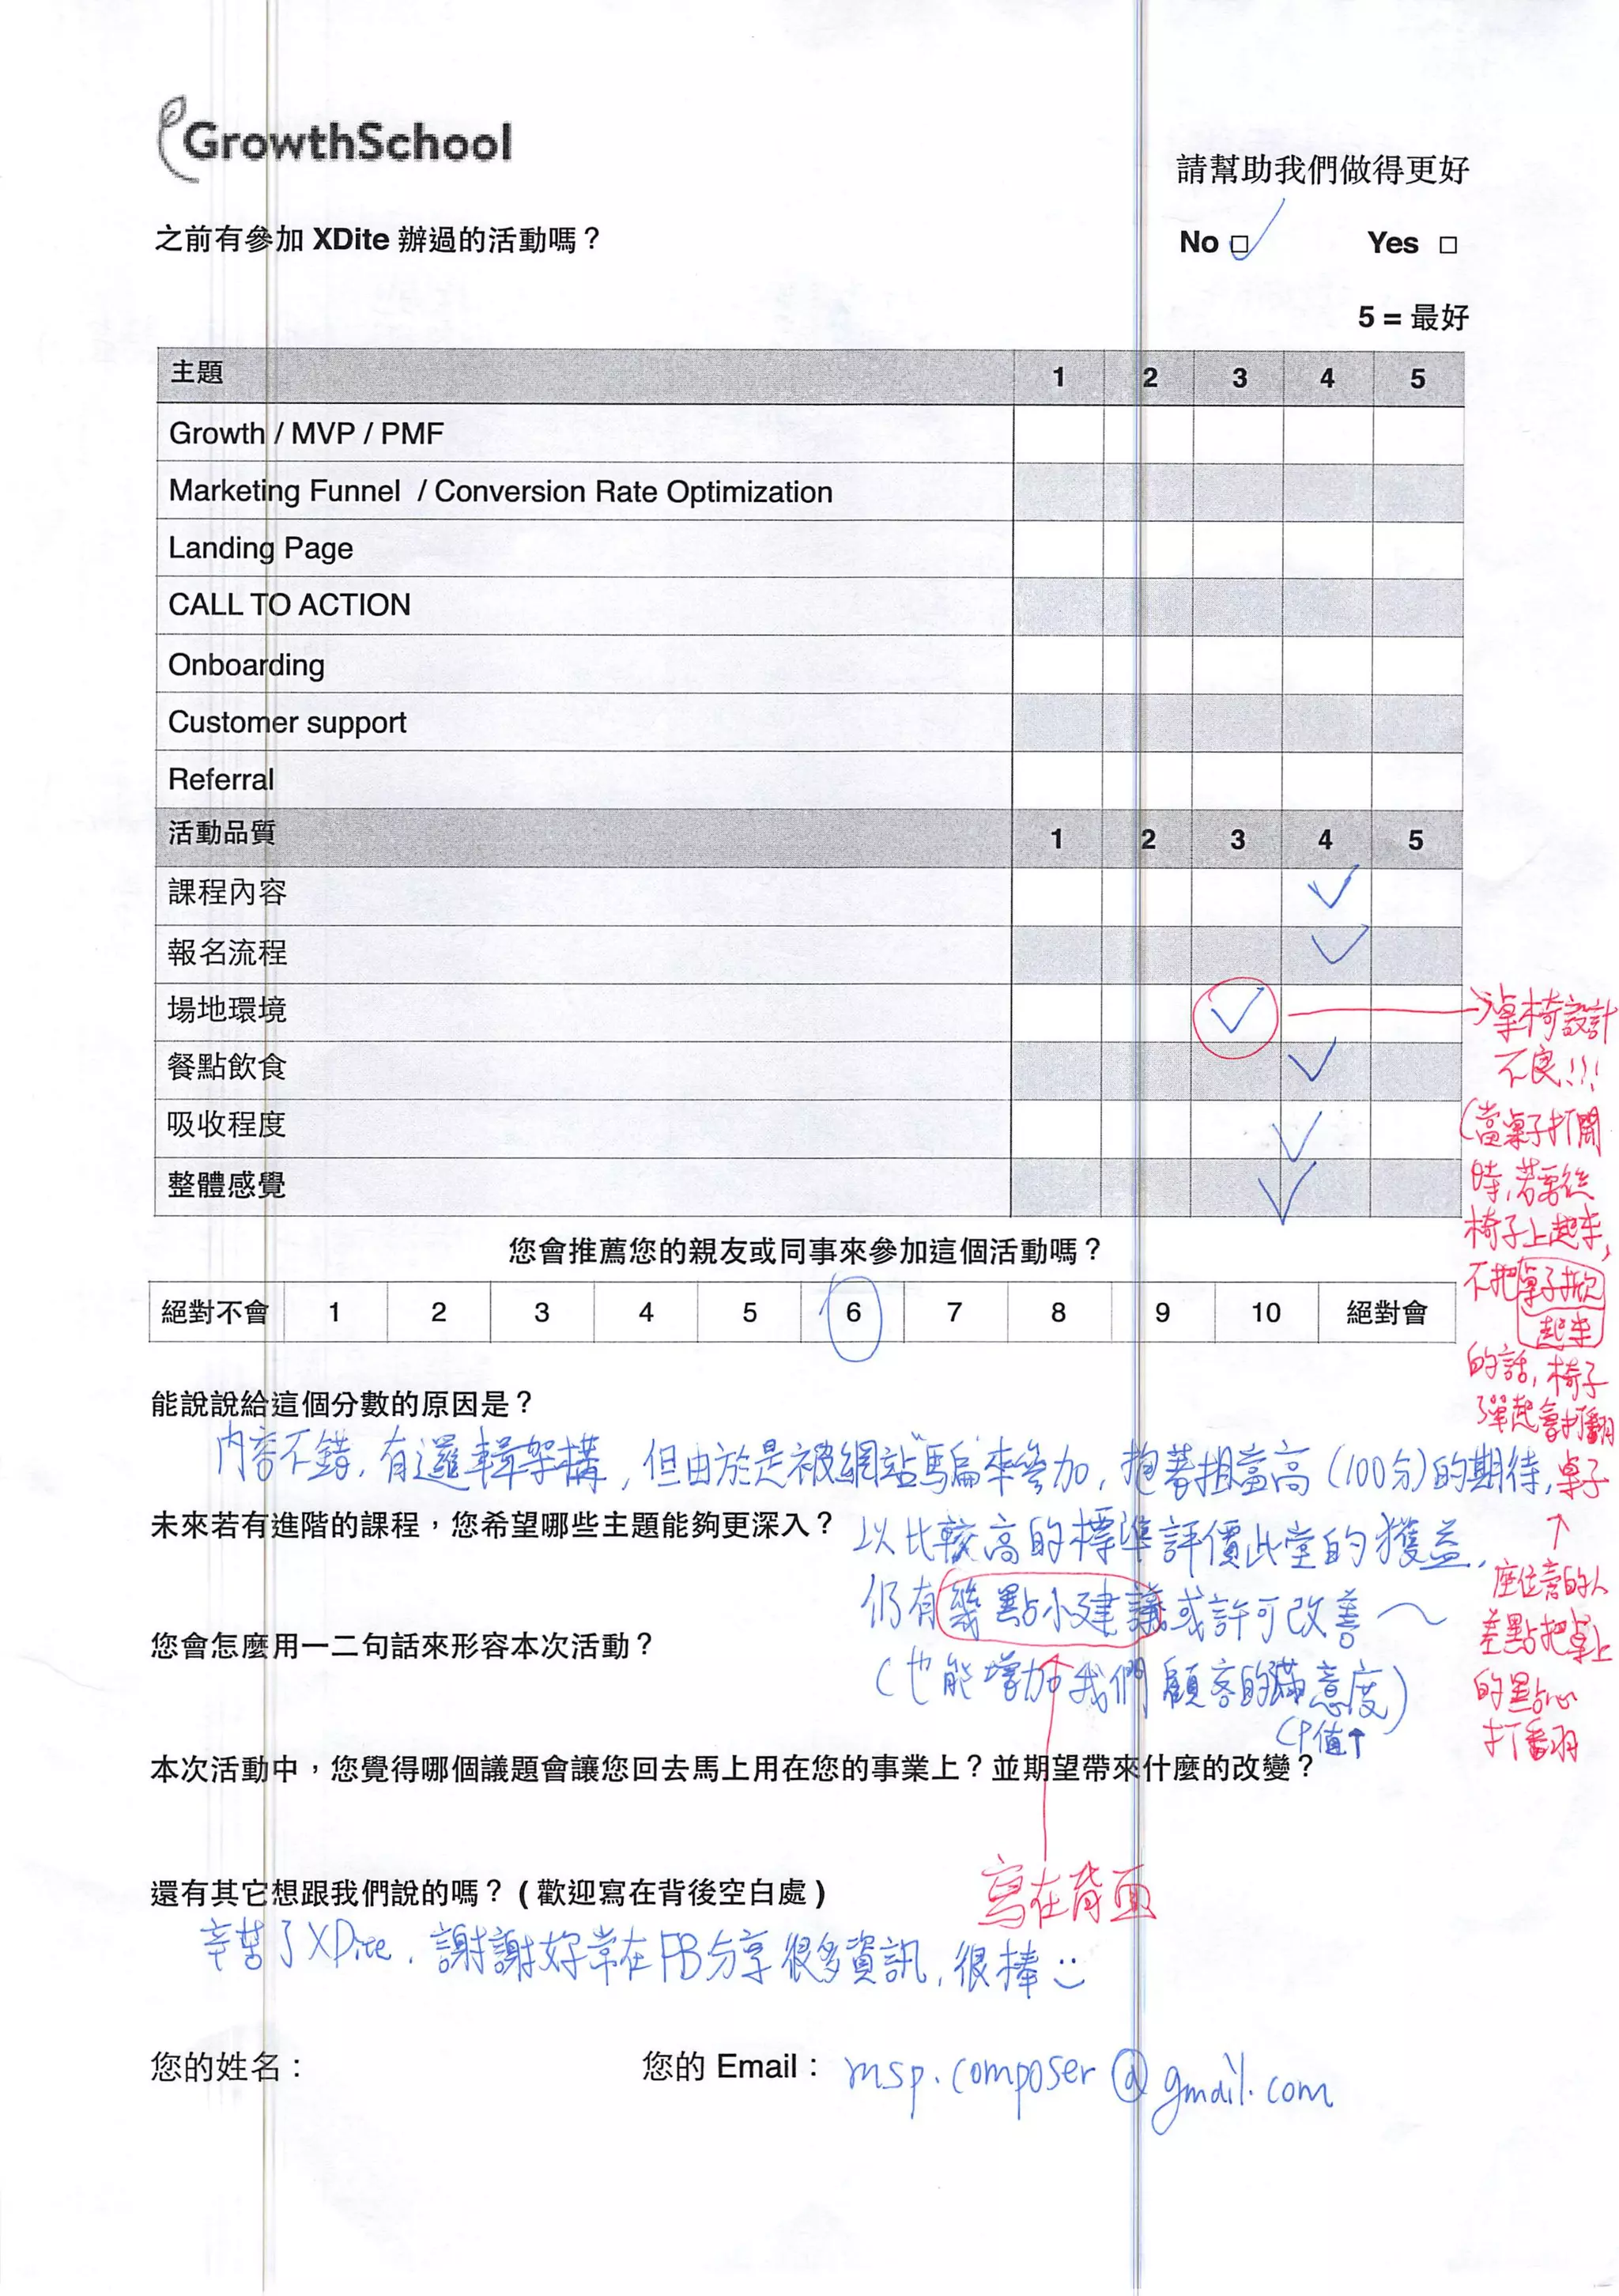 GrowthSchool
請幫助我們做得更好
之前有參加 XDite 辦過的活動嗎？ No □ Yes □
5 = 最好
主題 1 2 3 4 5
Growth / MVP / PMF
Marketing Funnel / Conversion Rate Optimization
Landing Page
CALL TO ACTION
Onboarding
Customer support
Referral
活動品質 1 2 3 4 5
課程內容
報名流程
場地環境
餐點飲食
吸收程度
整體感覺
桌椅設計
不良!!!
(當桌子打開
時,若要從
椅子上起來,
不把桌子掀
起來
的話,椅子
彈起會打翻
桌子
↑
座位旁的人
差點把桌上
的點心
打翻
您會推薦您的親友或同事來參加這個活動嗎？
絕對不會 1 2 3 4 5 6 7 8 9 10 絕對會
能說說給這個分數的原因是？
内容不錯,有邏輯架構,但由於是被網站"騙"來參加,抱著相當高(100分)的期待,
未來若有進階的課程，您希望哪些主題能夠更深入？
以比較高的標準評價此堂的獲益,
仍有幾點小建議或許可改善～
您會怎麼用一二句話來形容本次活動？
(也能增加我們顧客的滿意度)
CP值↑
本次活動中，您覺得哪個議題會讓您回去馬上用在您的事業上？並期望帶來什麼的改變？
寫在背面
還有其它想跟我們說的嗎？ ( 歡迎寫在背後空白處 )
辛苦了XDite,謝謝妳常在FB分享很多資訊,很棒:)
您的姓名：
您的 Email： msp.composer@gmail.com